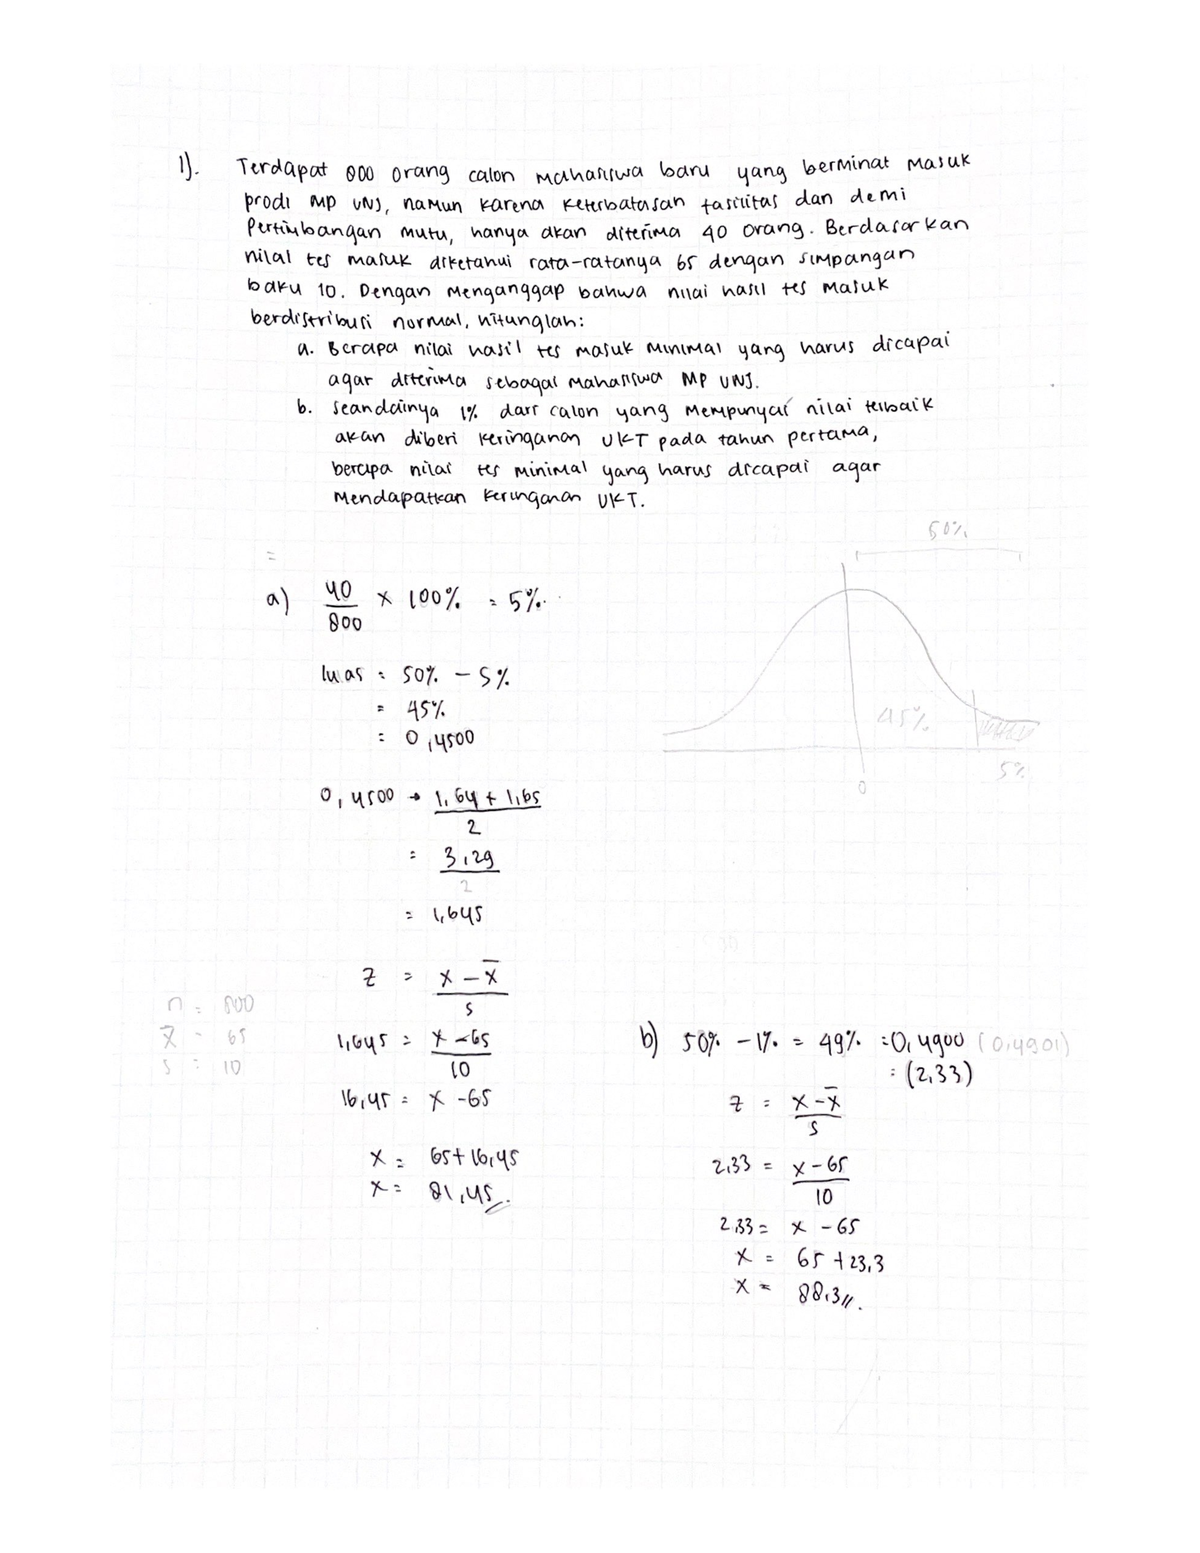 1). Terdapat 800 orang calon mahasiswa baru yang berminat masuk
prodi MP UNJ, namun karena keterbatasan fasilitas dan demi
Pertimbangan mutu, hanya akan diterima 40 orang. Berdasarkan
nilai tes masuk diketahui rata-ratanya 65 dengan simpangan
baku 10. Dengan menganggap bahwa nilai hasil tes masuk
berdistribusi normal, hitunglah:
a. Berapa nilai hasil tes masuk minimal yang harus dicapai
agar diterima sebagai mahasiswa MP UNJ.
b. Seandainya 1% dari calon yang mempunyai nilai terbaik
akan diberi keringanan UKT pada tahun pertama,
berapa nilai tes minimal yang harus dicapai agar
Mendapatkan keringanan UKT.
50%
=
a) 40/800 × 100% = 5%
luas = 50% - 5%
= 45%
= 0,4500
45%
5%
0
0,4500 → 1,64 + 1,65
2
= 3,29
2
= 1,645
z = x - x̄
s
n = 800
x̄ = 65
s = 10
1,645 = x - 65
10
16,45 = x - 65
x = 65 + 16,45
x = 81,45
b) 50% - 1% = 49% = 0,4900 (0,4901)
= (2,33)
z = x - x̄
s
2,33 = x - 65
10
2,33 = x - 65
x = 65 + 23,3
x = 88,3